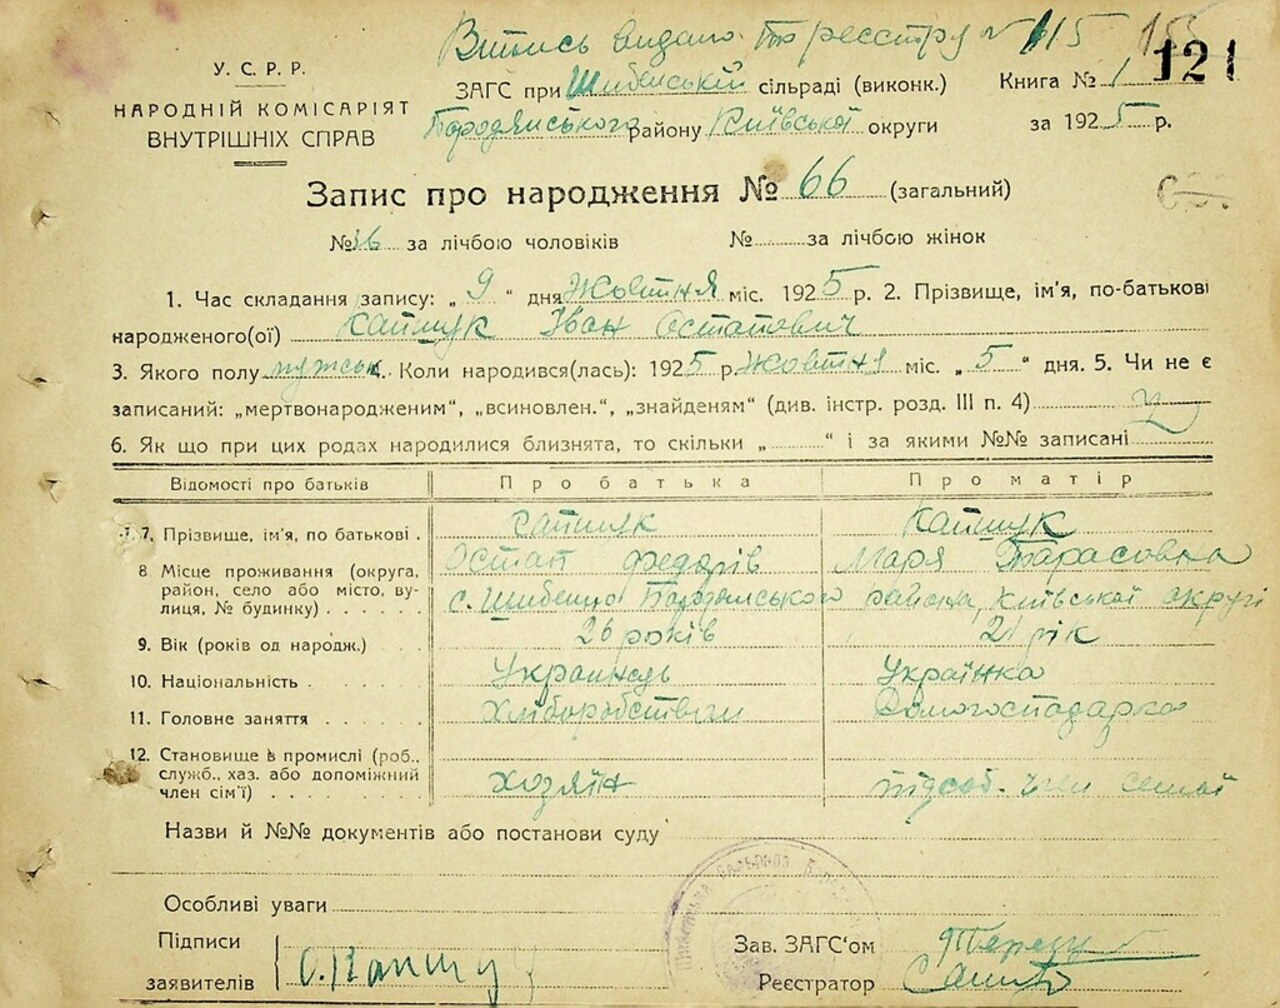 Витись видано по реєстру № 115
155 121
У. С. Р. Р.
НАРОДНІЙ КОМІСАРІЯТ
ВНУТРІШНІХ СПРАВ
ЗАГС при Шибенській сільраді (виконк.) Книга № 1
Бородянського району Київської округи за 1925 р.
Запис про народження № 66 (загальний)
№ 36 за лічбою чоловіків № за лічбою жінок
1. Час складання запису: „ 9 “ дня Жовтня міс. 1925 р. 2. Прізвище, ім'я, по-батькові
народженого(ої) Капшук Іван Остапович
3. Якого полу мужськ. 4. Коли народився(лась): 1925 р. Жовтня міс. „ 5 “ дня. 5. Чи не є
записаний: „мертвонародженим“, „всиновлен.“, „знайденям“ (див. інстр. розд. III п. 4)
6. Як що при цих родах народилися близнята, то скільки „ “ і за якими №№ записані
Відомості про батьків Про батька Про матір
7. Прізвище, ім'я, по батькові . Капшук Капшук
Остап Федорів Маря Тарасовна
8 Місце проживання (округа, район, село або місто, вулиця, № будинку) . . . . . с. Шибенно Бородянського района, Київської округі
9. Вік (років од народж.) . . 26 років 21 рік
10. Національність . . . . . Українець Українка
11. Головне заняття . . . . . Хліборобством Домогосподарка
12. Становище в промислі (роб., служб., хаз. або допоміжний член сім'ї) . . . . . . . хозяїн підсоб. член семьї
Назви й №№ документів або постанови суду
Особливі уваги
Підписи
заявителів О. Капшук
Зав. ЗАГС‘ом
Реєстратор